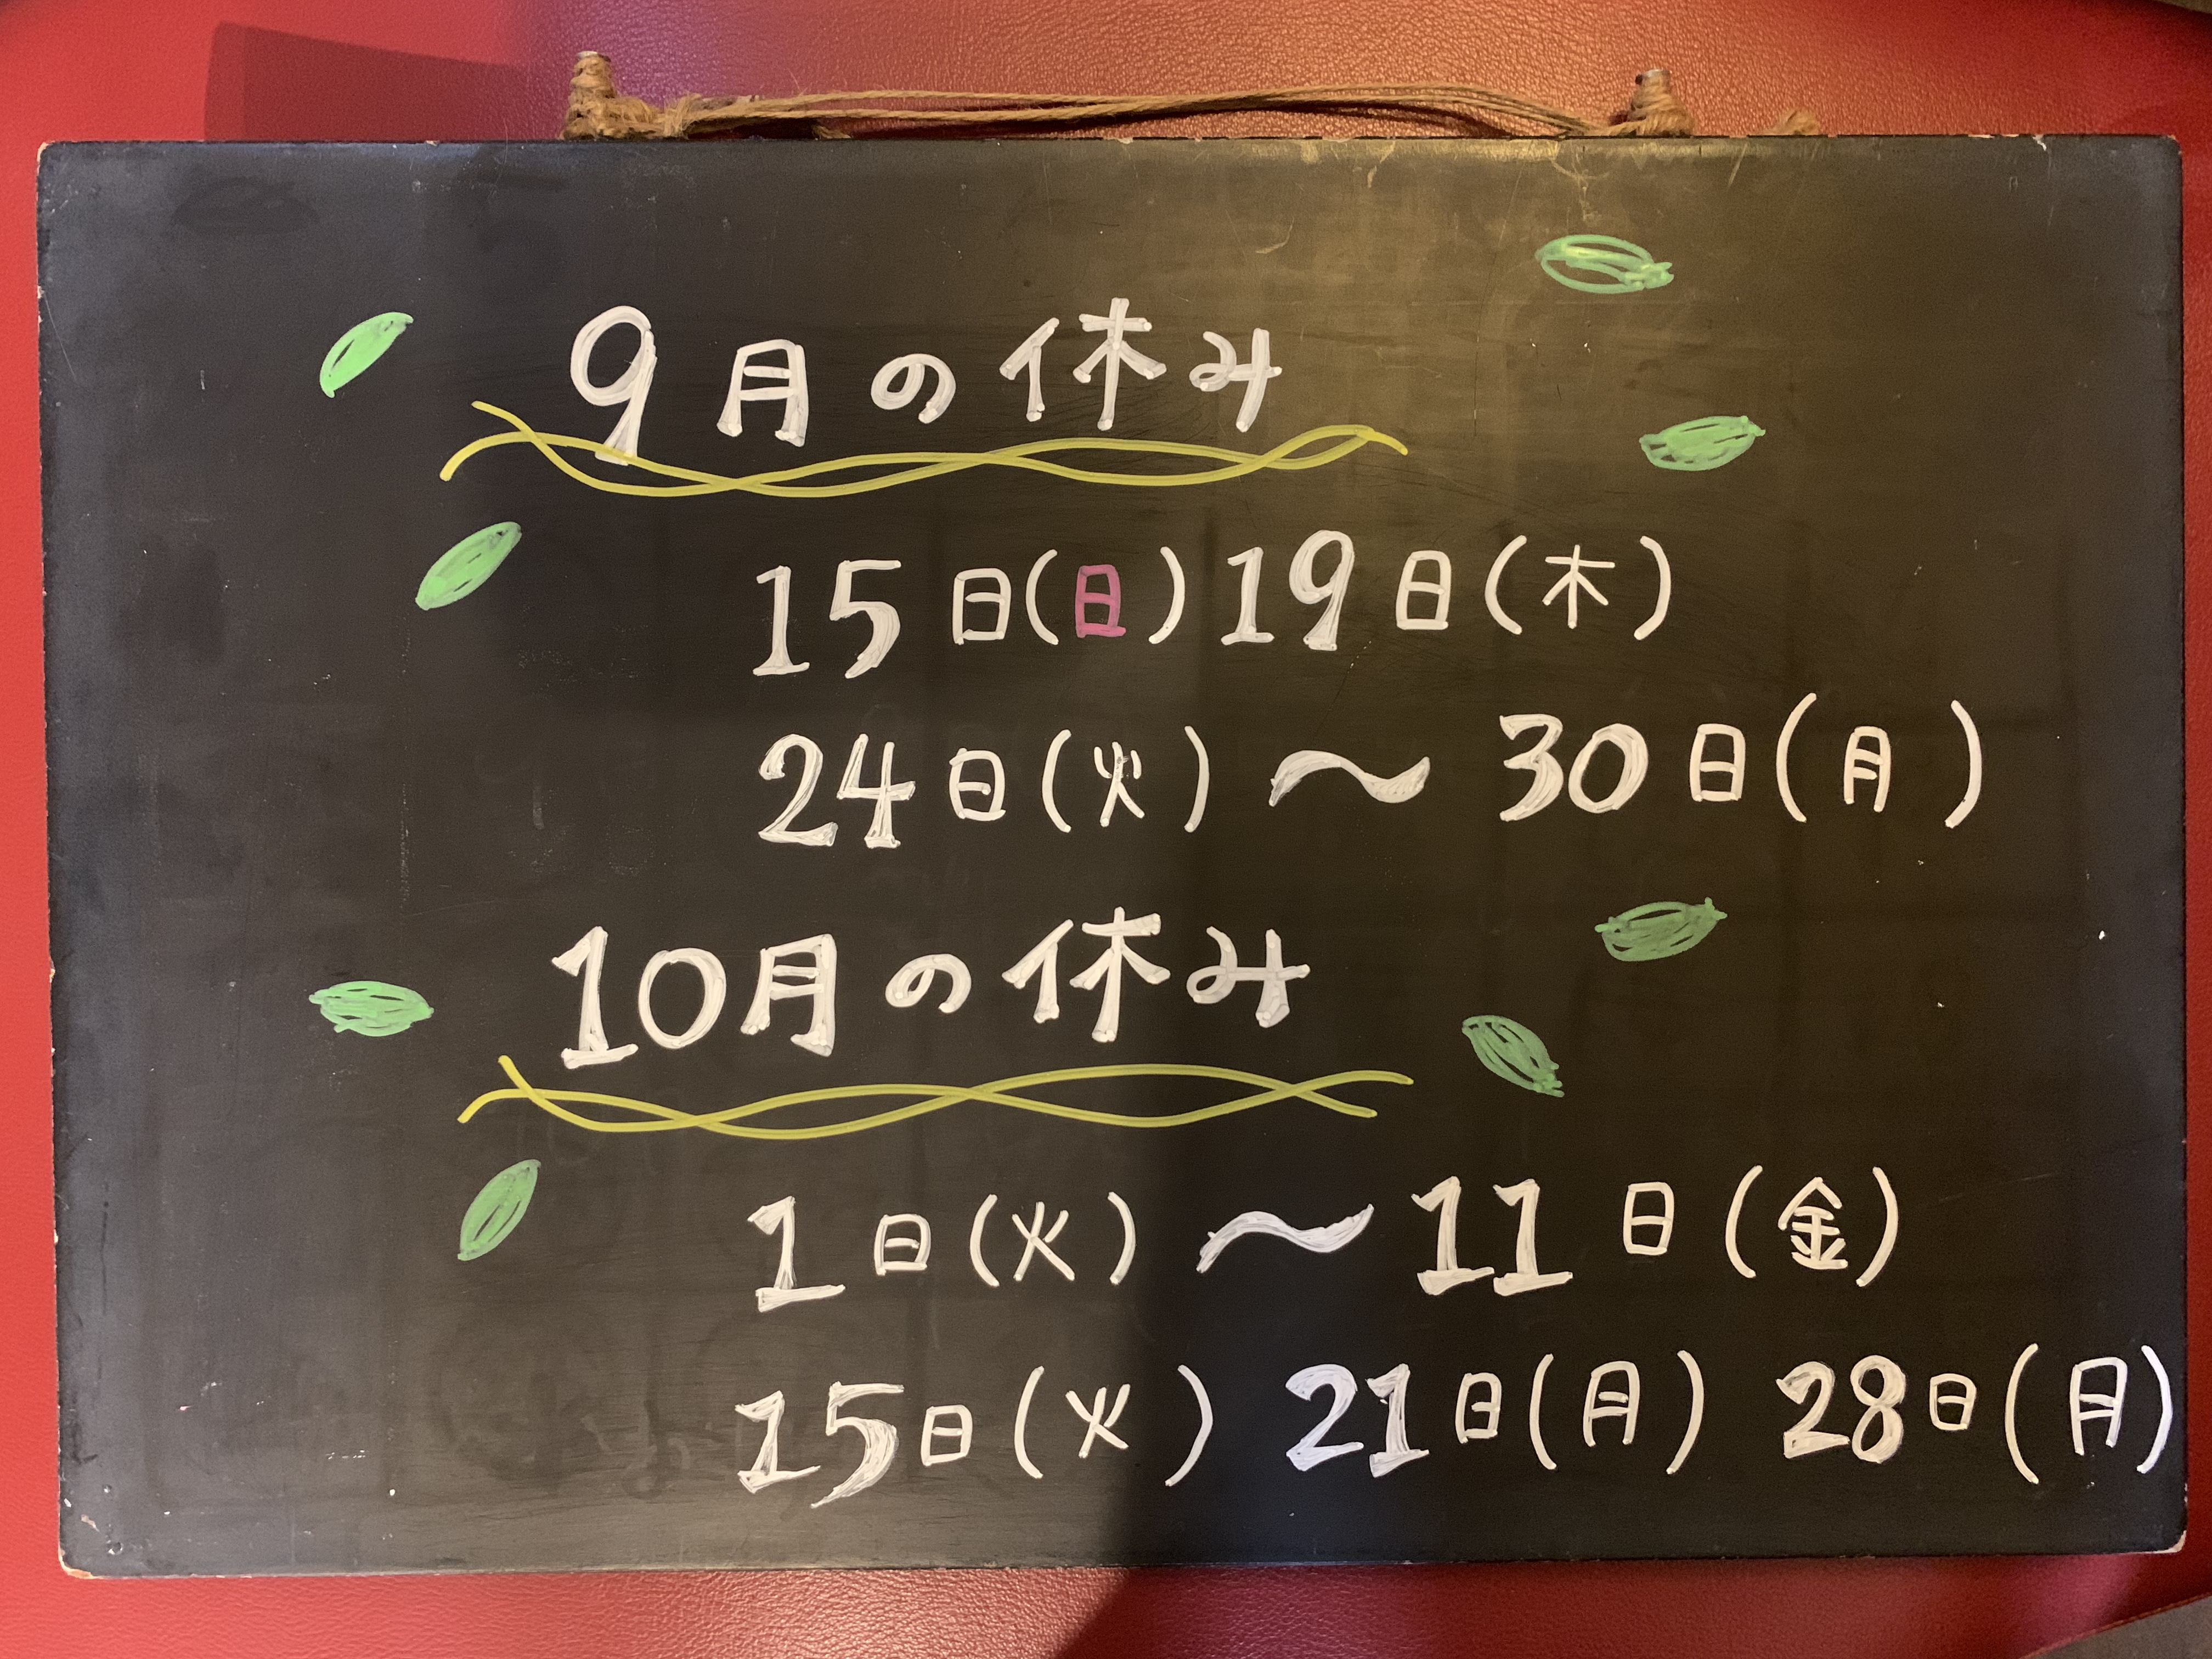 9月の休み
15日(日)19日(木)
24日(火)〜30日(月)
10月の休み
1日(火)〜11日(金)
15日(火) 21日(月) 28日(月)